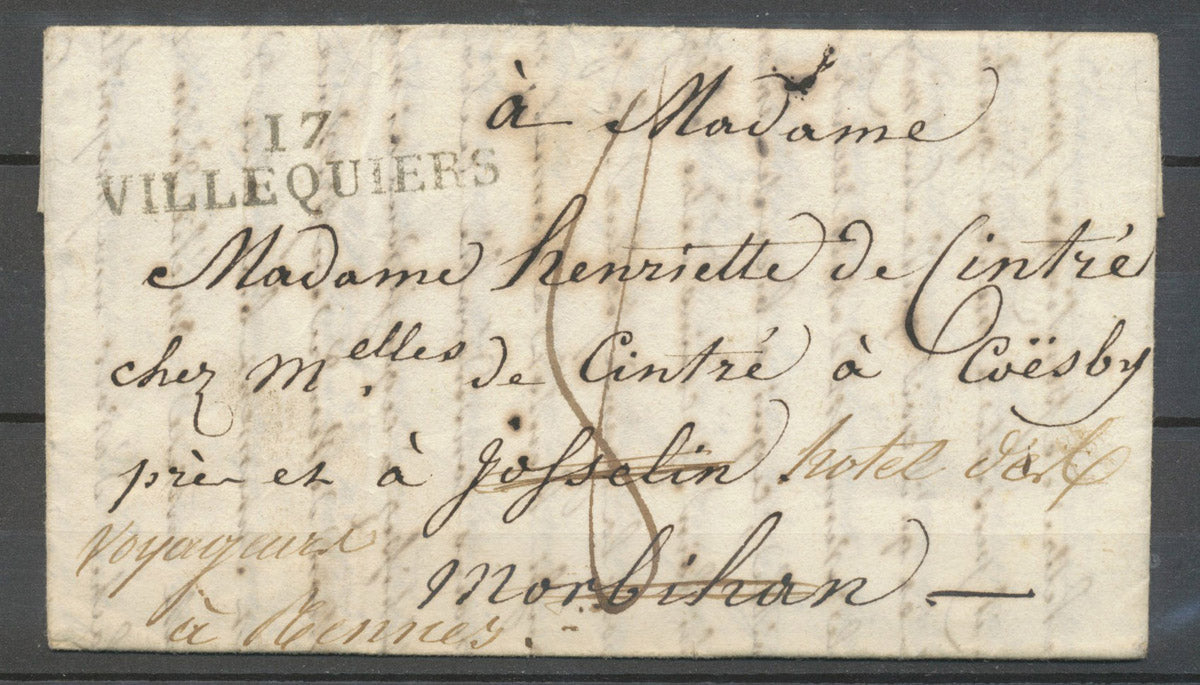 17
VILLEQUIERS
à Madame
Madame henriette de Cintré
chez Melles de Cintré à Coësby
près et à Josselin hotel des
voyageurs
Morbihan. —
à Rennes.
8